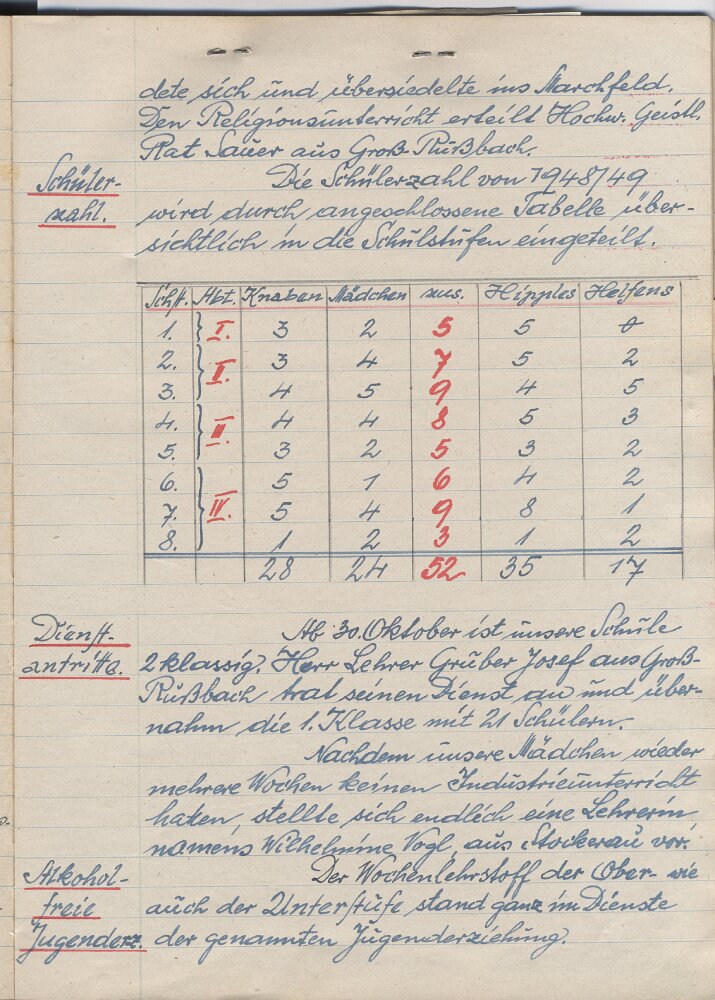 dete sich und übersiedelte ins Marchfeld.
Den Religionsunterricht erteilt Hochw. Geistl.
Rat Sauer aus Groß-Rußbach.
Schüler-
zahl.
Die Schülerzahl von 1948/49
wird durch angeschlossene Tabelle über-
sichtlich in die Schulstufen eingeteilt.
Schst. Abt. Knaben Mädchen zus. Hipples Helfens
1. I. 3 2 5 5 0
2. II. 3 4 7 5 2
3. 4 5 9 4 5
4. III. 4 4 8 5 3
5. 3 2 5 3 2
6. 5 1 6 4 2
7. IV. 5 4 9 8 1
8. 1 2 3 1 2
28 24 52 35 17
Dienst-
antritte.
Ab 30. Oktober ist unsere Schule
2klassig. Herr Lehrer Gruber Josef aus Groß-
Rußbach trat seinen Dienst an und über-
nahm die 1. Klasse mit 21 Schülern.
Nachdem unsere Mädchen wieder
mehrere Wochen keinen Industrieunterricht
haten, stellte sich endlich eine Lehrerin
namens Wilhelmine Vogl, aus Stockerau vor.
Alkohol-
freie
Jugenderz.
Der Wochenlehrstoff der Ober- wie
auch der Unterstufe stand ganz im Dienste
der genannten Jugenderziehung.